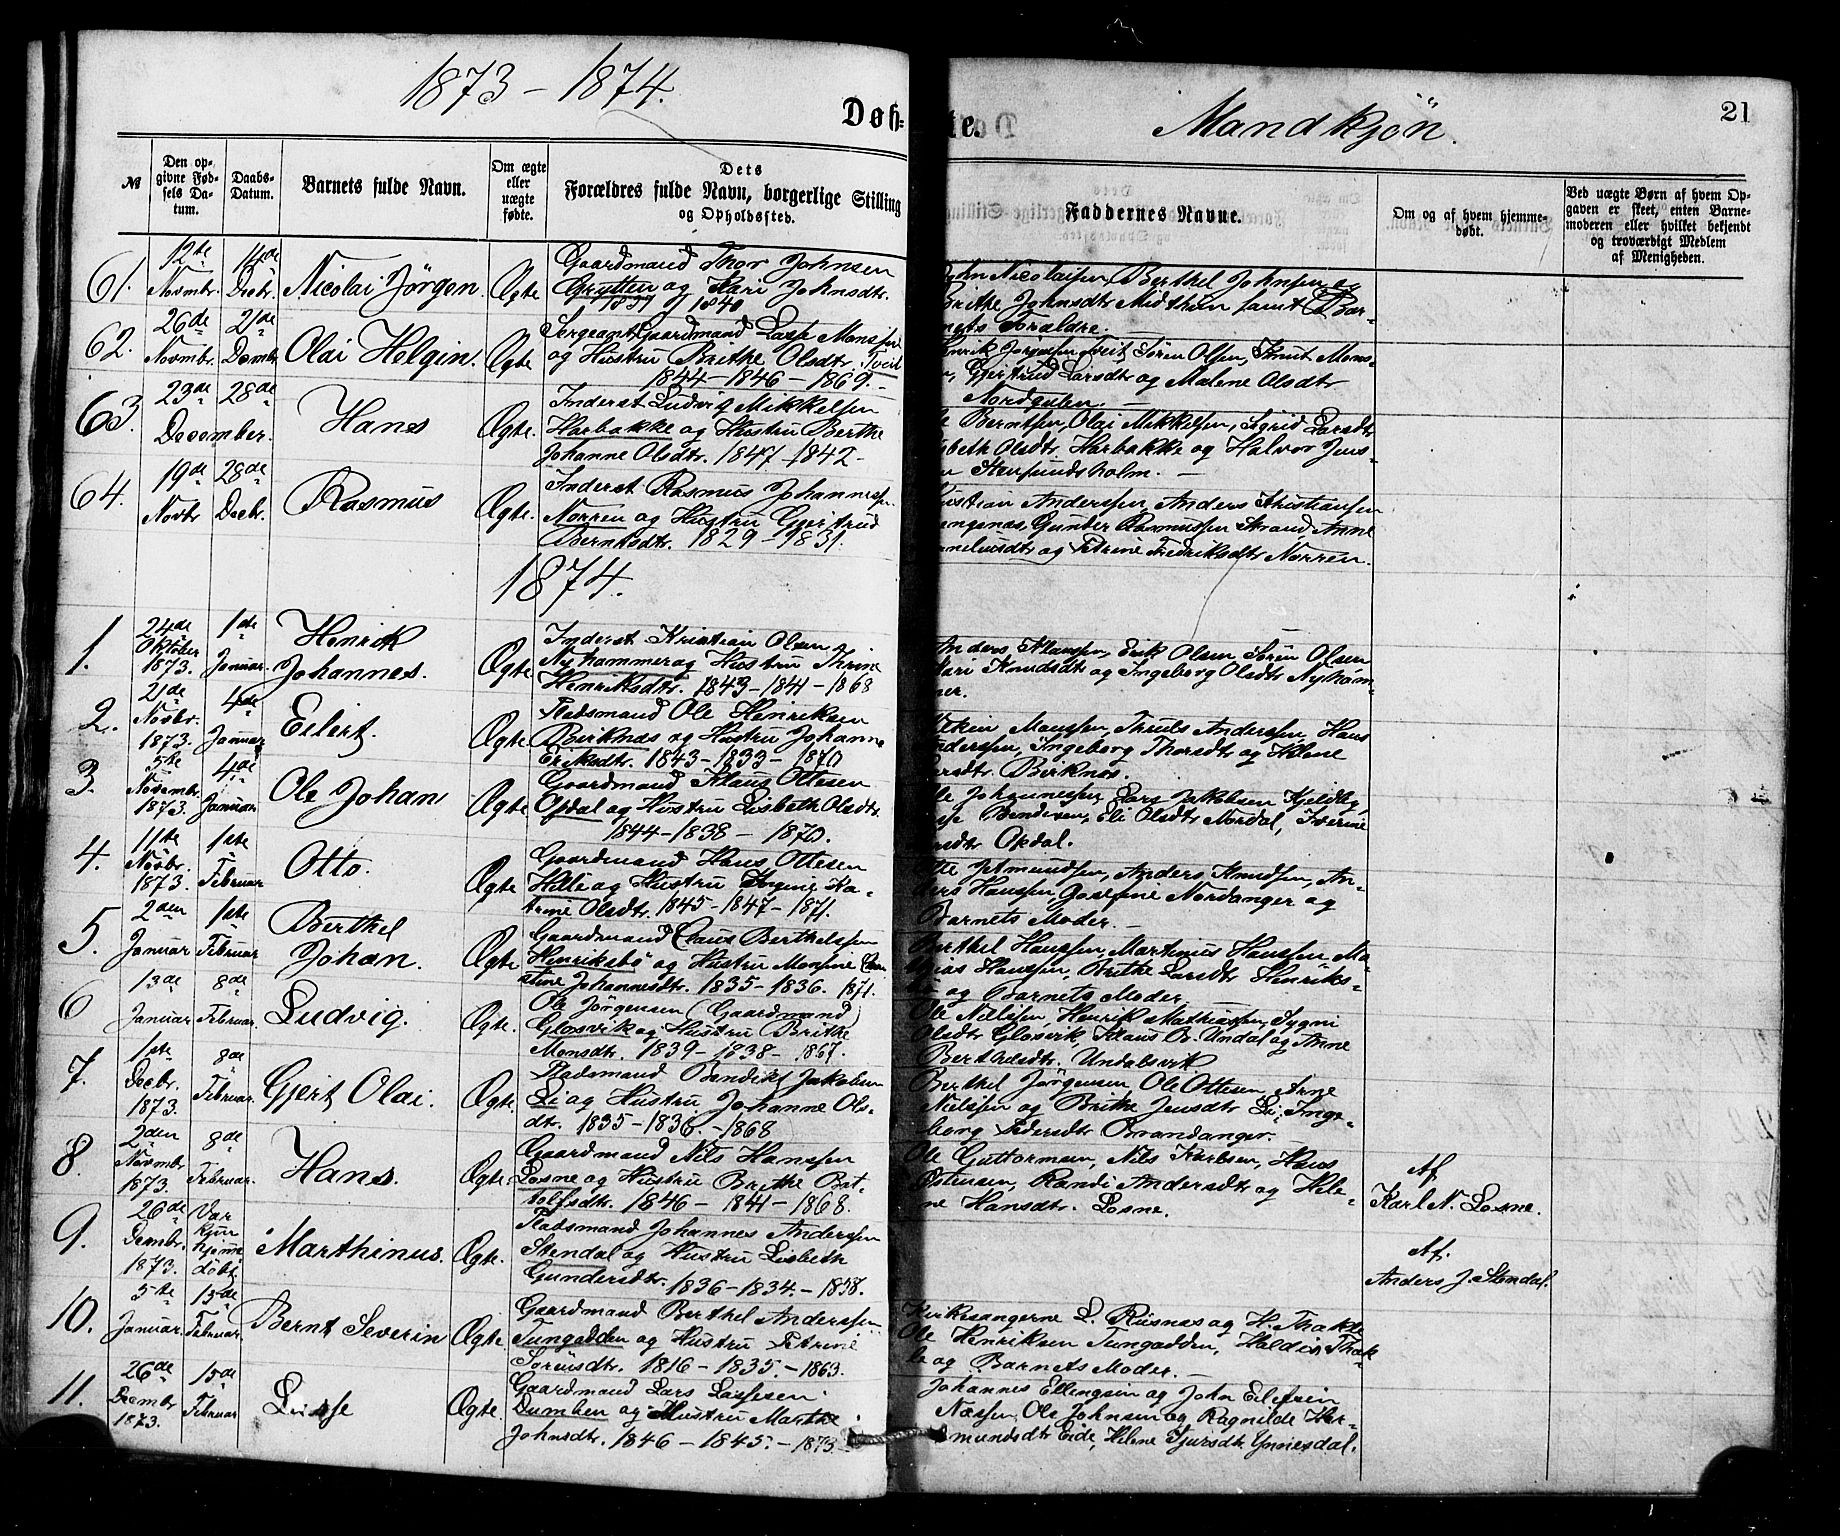 1873 – 1874.
Døb=
te. Mandkjön. 21
№
Den op=
givne Fød=
sels Da=
tum.
Daabs=
Datum.
Barnets fulde Navn.
Om ægte
eller
uægte
fødte.
Dets
Forældres fulde Navn, borgerlige Stilling
og Opholdssted.
Faddernes Navne.
Om og af hvem hjemme=
døbt.
Ved uægte Børn af hvem Op=
gaven er skeet, enten Barne=
moderen eller hvilket bekjendt
og troværdigt Medlem
af Menigheden.
61. 12te Novmbr. 14de Decbr. Nicolai Jørgen. Ægte
Gaardmand Thor Johnsen
Grytten og Kari Johnsdtr.
1837 1840
John Nicolaisen, Berthel Johnsen og
Brithe Johnsdtr Midthun samt Bar-
nets Forældre.
62. 26de Novmbr. 21de Decmbr Olai Helgin. Ægte
Sergeant Gaardmand Lasse Monssen
og Hustru Brithe Olsdtr. Tveit
1844 – 1846 – 1869. –
Henrik Jörgensen Tveit, Sören Olsen, Knut Mons-
en, Gjertrud Larsdtr og Malene Olsdtr
Nordgulen. –
63. 23de 28de December. Hans Ægte.
Inderst Ludvig Mikkelsen
Harbakke og Hustru Berthe
Johanne Olsdtr. 1847 – 1842 –
Berntsen, Olai Mikkelsen, Sigrid Larsdtr
Lisbeth Olsdtr. Harbakke og Halvor Jens-
en Stensundsholm. –
64. 19de Novbr 28de Decbr. Rasmus Ægte.
Inderst Rasmus Johannessen
Norren og Hustru Gjertrud
Berntsdtr. 1829 – 1831.
Kristian Anderssen, Anders Kristiansen
Gunder Rasmussen Strand, Anne
Corneliusdtr og Petrine Fredriksdtr Norren.
1874.
1. 24de Oktober 1873. 1de Januar. Henrik
Johannes. Ægte
Inderst Kristian Olsen
Nyhammer og Hustru Thrine
Henriksdtr. 1843 – 1841 – 1868
Anders Klaussen, Erik Olsen Sörin Olsen
Kari Knudsdtr og Ingeborg Olsdtr Nyham-
mer.
2. 21de Novbr. 1873. 4de Januar Eilert. Ægte
Pladsmand Ole Henriksen
Birknæs og Hustru Johanne
Eriksdtr. 1843 – 1833 – 1870
Monssen, Truls Anderssen, Hans
Anderssen, Ingeborg Thorsdtr og Helene
Larsdtr. Birknes.
3. 5te Novembr. 1873. 4de Januar Ole Johan Ægte
Gaardmand Klaus Ottesen
Opdal og Hustru Lisbeth Olsdtr.
1844 – 1838 – 1870.
Ole Johannessen, Lars Jakobsen Kjeldby,
Bendixen, Eli Olsdtr Nordal, Iverine
Larsdtr Opdal.
4. 11te Novbr. 1873. 1ste Februar Otto. Ægte
Gaardmand Hans Ottesen
Hille og Hustru Ingine Ka-
trine Olsdtr. 1845 – 1847 – 1871.
Otte Jetmundsen, Anders Knudsen, An-
ders Hanssen, Josefine Nordanger og
Barnets Moder. –
5. 2den Januar 1ste Februar Berthel
Johan. Ægte
Gaardmand Claus Berthelssen
Henriksbö og Hustru Monsine Chri
stine Johannesdtr. 1835 – 1836. 1871.
Berthel Hanssen, Martinus Hanssen, Ma-
thias Hanssen, Brithe Larsdtr Henriks-
bö og Barnets Moder.
6 13de Januar 8de Februar. Ludvig. Ægte
Ole Jörgensen (Gaardmand)
Glosvik og Hustru Brithe
Monsdtr. 1839 – 1838 – 1867.
Ole Nielsen, Henrik Mathiassen, Sygni
Olsdtr Glosvik, Klaus B. Undal og Anne
Berthelsdtr. Undalsvik
7. 1ste Decbr. 1873. 8de Februar. Gjert Olai. Ægte.
Pladsmand Bendikt Jakobsen
Li og Hustru Johanne Ols-
dtr. 1835 – 1836. – 1868
Berthel Jörgensen, Ole Ottesen, Arne
Nielssen og Brithe Jensdtr Li, Inge-
borg Pedersdtr Brandanger.
8. 2den Novmbr 1873. 8de Februar. Hans. Ægte.
Gaardmand Nils Hanssen
Losne og Hustru Brithe Bot-
tolfsdtr. 1846 – 1841 – 1868.
Ole Guttormsen, Nils Karlsen, Hans
Östensen, Randi Andersdtr og Hele-
ne Hansdtr. Losne.
Af
Karl N. Losne.
9. 26de Decmbr. 1873. Var kjun hjemme döbt. Marthinus. Ægte.
Pladsmand Johannes Andersen
Stendal og Hustru Lisbeth
Gundersdtr. 1836 – 1834. – 1858.
Af.
Anders J. Stendal.
10. 5te Januar. 15de Februar. Bernt Severin Ægte.
Gaardmand Berthel Anderssen
Tungodden og Hustru Petrine
Sörensdtr. 1816 – 1835. – 1863.
Kirkesangerne L. Risnæs og H. Thakle
Ole Henriksen Tungodden, Haldis Thak-
le og Barnets Moder. –
11. 26de Decmbr 1873. 15de Februar Lasse Ægte.
Gaardmand Lars Lassesen
Dumben og Hustru Marthe
Johnsdtr. 1846 – 1845. – 1873.
Johannes Ellengsen og John Eilefsen
Næssen, Ole Johnsen og Ragnilde Her-
mundsdtr Eide, Helene Sjursdtr Ynnesdal.